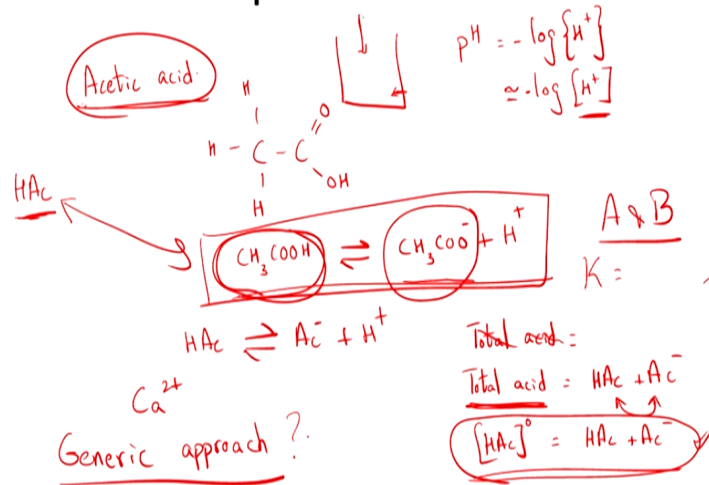 Acetic acid.
pH = -log{H⁺}
≈ -log[H⁺]
H
O
H - C - C
OH
H
HAc
CH₃COOH ⇌ CH₃COO⁻ + H⁺
A & B
K =
HAc ⇌ Ac⁻ + H⁺
Total acid =
Total acid = HAc + Ac⁻
Ca²⁺
[HAc]⁰ = HAc + Ac⁻
Generic approach ?